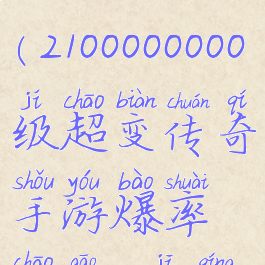 ( 2100000000
jí chāo biàn chuán qí
级超变传奇
shǒu yóu bào shuài
手游爆率
chāo gāo jí pǐng